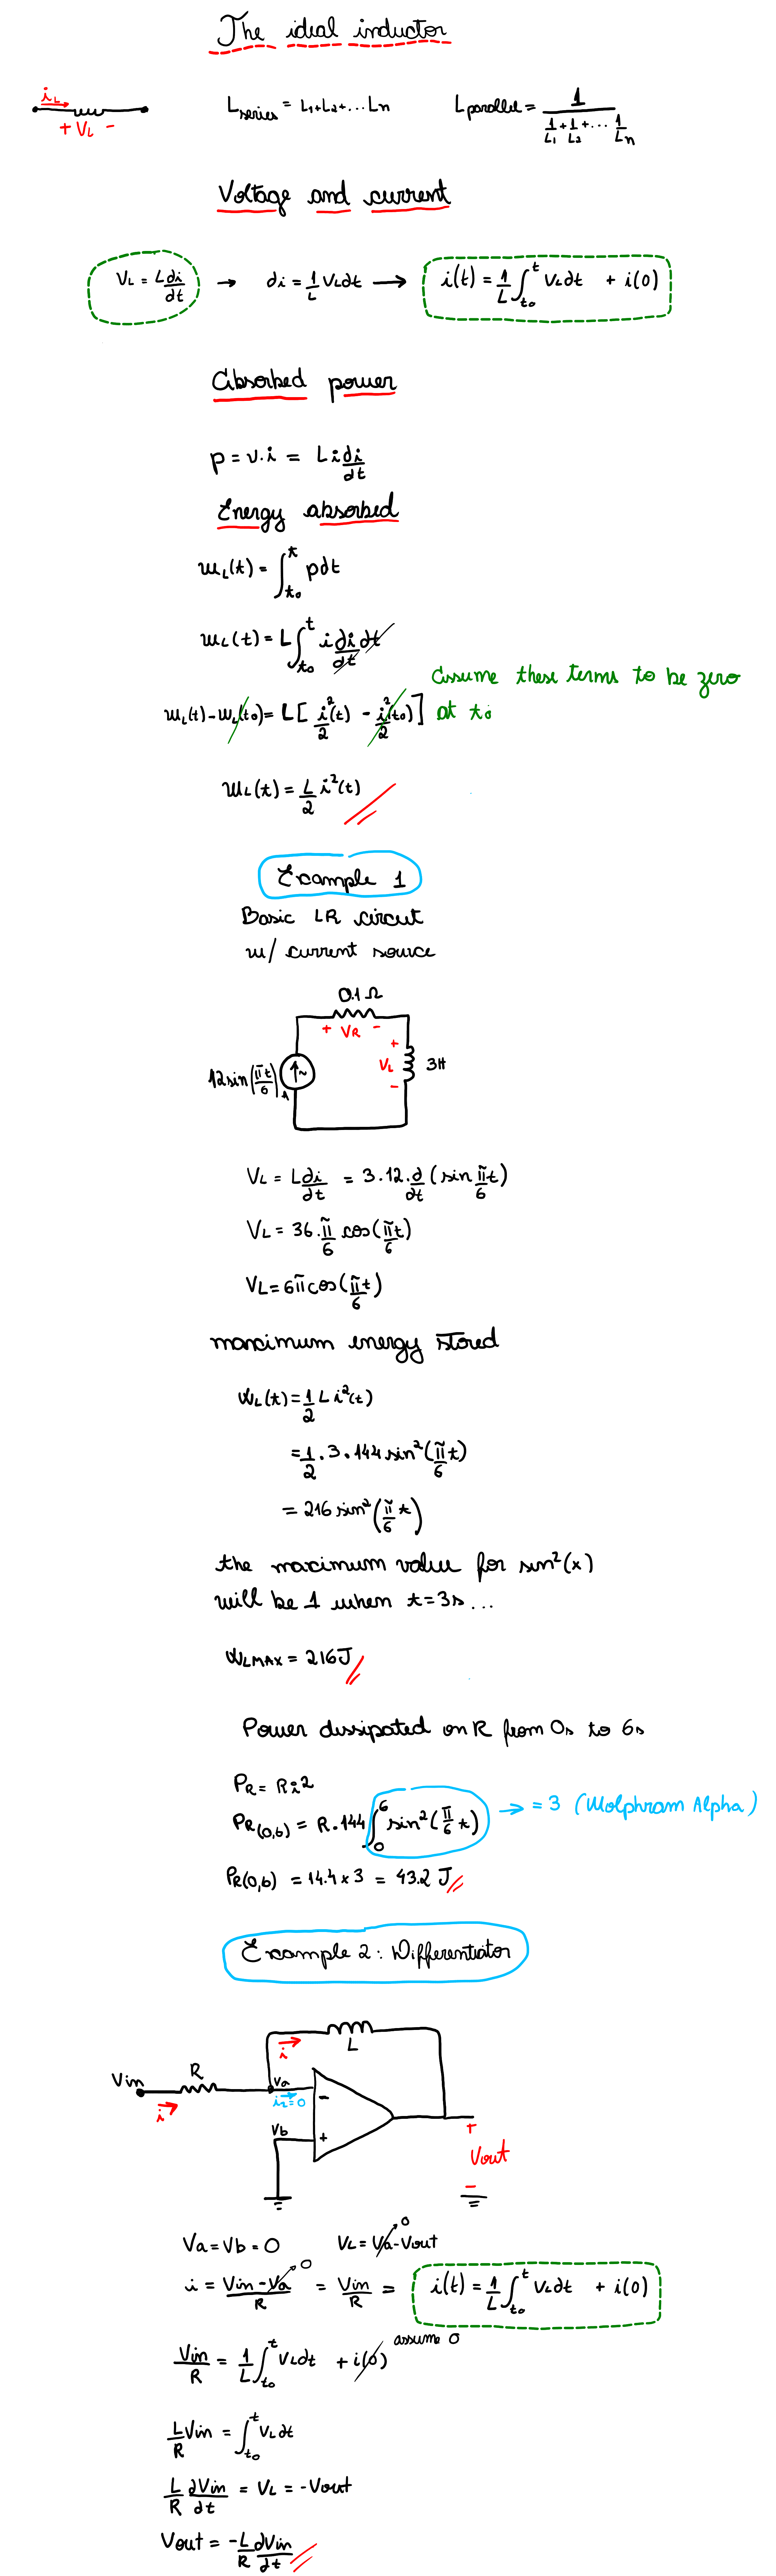 The ideal inductor
iL
+ VL -
Lseries = L1+L2+...Ln
Lparallel = 1/(1/L1 + 1/L2 +... 1/Ln)
Voltage and current
VL = L di/dt → di = 1/L VL dt → i(t) = 1/L ∫t0^t VL dt + i(0)
Absorbed power
p = v.i = L i di/dt
Energy absorbed
wL(t) = ∫t0^t p dt
wL(t) = L ∫t0^t i di/dt dt
Assume these terms to be zero
wL(t) - wL(t0) = L [ i²/2 (t) - i²/2 (t0) ] at t0
wL(t) = L/2 i²(t)
Example 1
Basic LR circut
w/ current source
0.1 Ω
+ VR -
12sin(πt/6) A
~
+
VL
-
3H
VL = L di/dt = 3.12. d/dt (sin πt/6)
VL = 36. π/6 cos(πt/6)
VL = 6π cos(πt/6)
maximum energy stored
wL(t) = 1/2 L i²(t)
= 1/2 . 3 . 144 sin²(π/6 t)
= 216 sin²(π/6 t)
the maximum value for sin²(x)
will be 1 when t=3s...
wLMAX = 216J
Power dissipated on R from 0s to 6s
PR = Ri²
PR(0,6) = R.144 ∫0^6 sin²(π/6 t) → = 3 (Wolphram Alpha)
PR(0,6) = 14.4 x 3 = 43.2 J
Example 2: Differentiator
L
i
Vin
R
Va
i
i2=0
-
Vb
+
+
Vout
-
Va = Vb = 0 VL = Va - Vout 0
i = Vin - Va/R 0 = Vin/R = i(t) = 1/L ∫t0^t VL dt + i(0)
Vin/R = 1/L ∫t0^t VL dt + i(0) assume 0
L/R Vin = ∫t0^t VL dt
L/R dVin/dt = VL = -Vout
Vout = -L/R dVin/dt